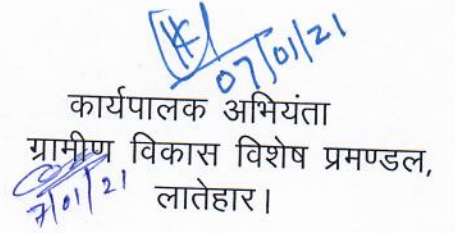 07/01/21
कार्यपालक अभियंता
ग्रामीण विकास विशेष प्रमण्डल,
7/01/21 लातेहार।